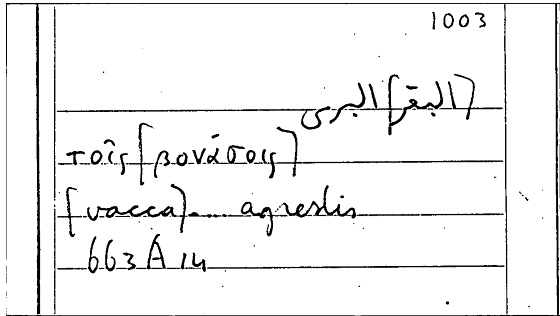 1003
[البقر] البرى
τοῖς [βονάσοις]
[vacca].... agrestis
663A 14